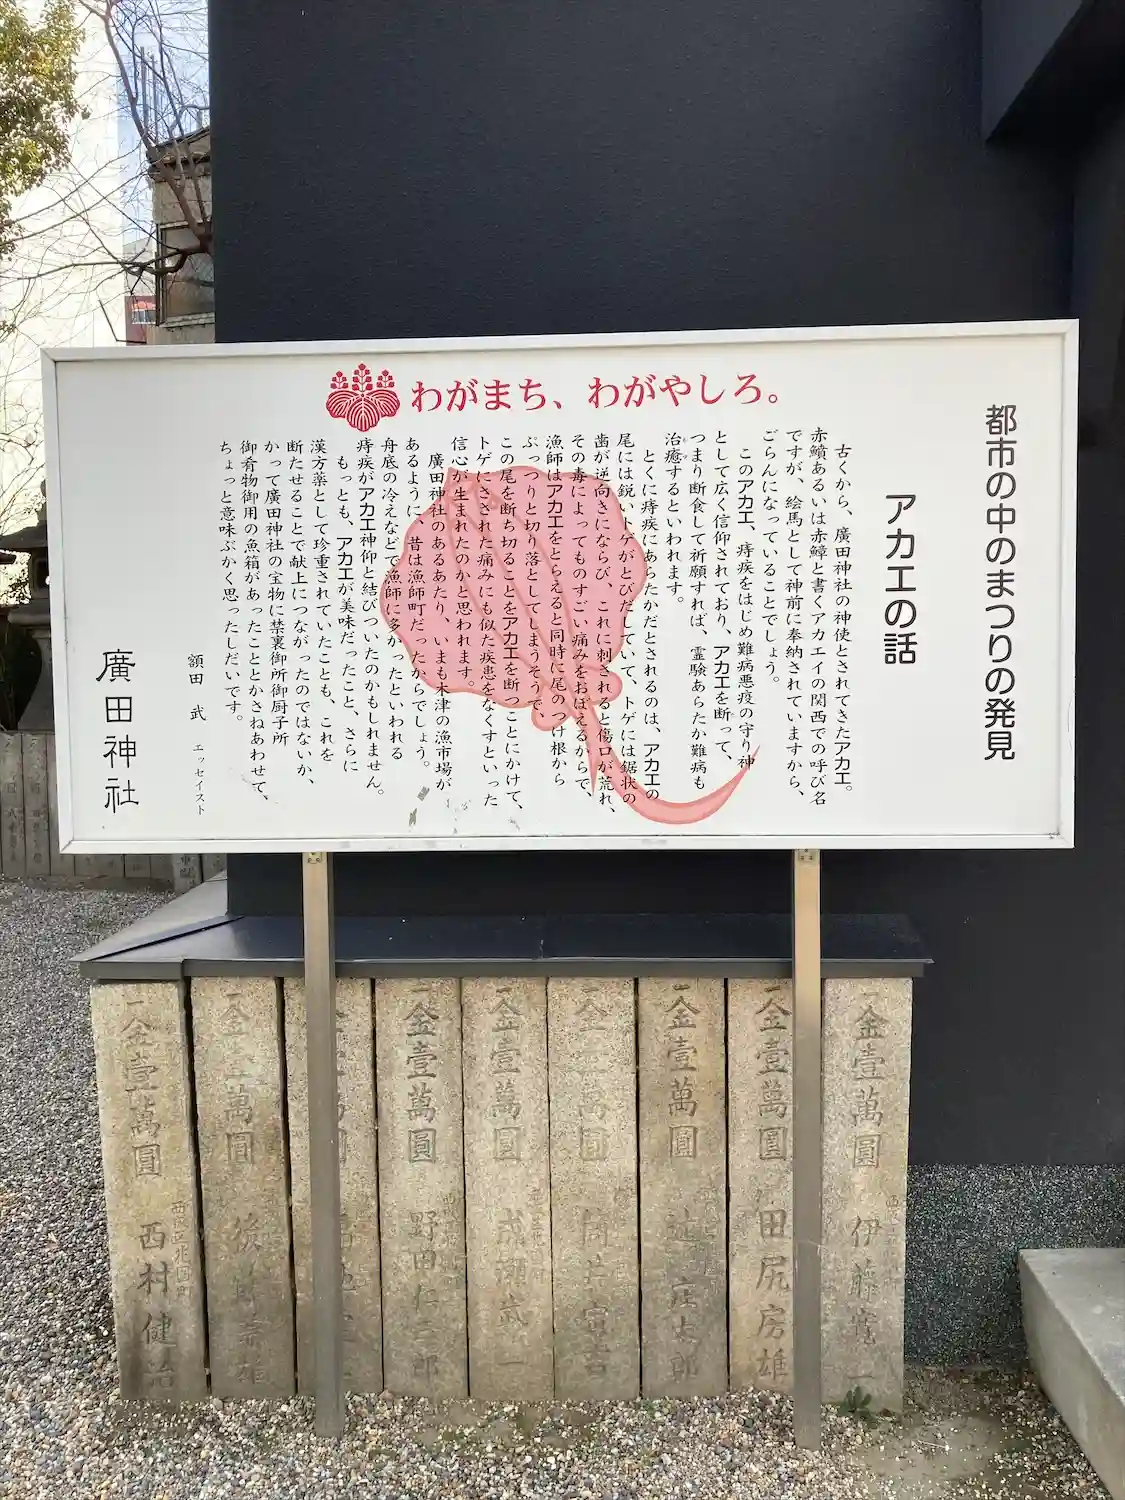 わがまち、わがやしろ。
都市の中のまつりの発見
アカエの話
古くから、廣田神社の神使とされてきたアカエ。
赤鱝あるいは赤鱏と書くアカエイの関西での呼び名
ですが、絵馬として神前に奉納されていますから、
ごらんになっていることでしょう。
このアカエ、痔疾をはじめ難病悪疫の守り神
として広く信仰されており、アカエを断って、
つまり断食して祈願すれば、霊験あらたか難病も
治癒するといわれます。
とくに痔疾にあらたかだとされるのは、アカエの
尾には鋭いトゲがとびだしていて、トゲには鋸状の
歯が逆向きにならび、これに刺されると傷口が荒れ、
その毒によってものすごい痛みをおぼえるからで、
漁師はアカエをとらえると同時に尾のつけ根から
ぷっつりと切り落としてしまうそうで、
この尾を断ち切ることをアカエを断つことにかけて、
トゲにさされた痛みにも似た疾患をなくすといった
信心が生まれたのかと思われます。
廣田神社のあるあたり、いまも木津の漁市場が
あるように、昔は漁師町だったからでしょう。
舟底の冷えなどで漁師に多かったといわれる
痔疾がアカエ神仰と結びついたのかもしれません。
もっとも、アカエが美味だったこと、さらに
漢方薬として珍重されていたことも、これを
断たせることで献上につながったのではないか、
かつて廣田神社の宝物に禁裏御所御厨子所
御肴物御用の魚箱があったこととかさねあわせて、
ちょっと意味ぶかく思ったしだいです。
額田 武 エッセイスト
廣田神社
一金壹萬圓 伊藤寛一
一金壹萬圓 田尻房雄
一金壹萬圓 辻庄太郎
一金壹萬圓
一金壹萬圓
一金壹萬圓 野田仁三郎
一金壹萬圓
一金壹萬圓 西村健治